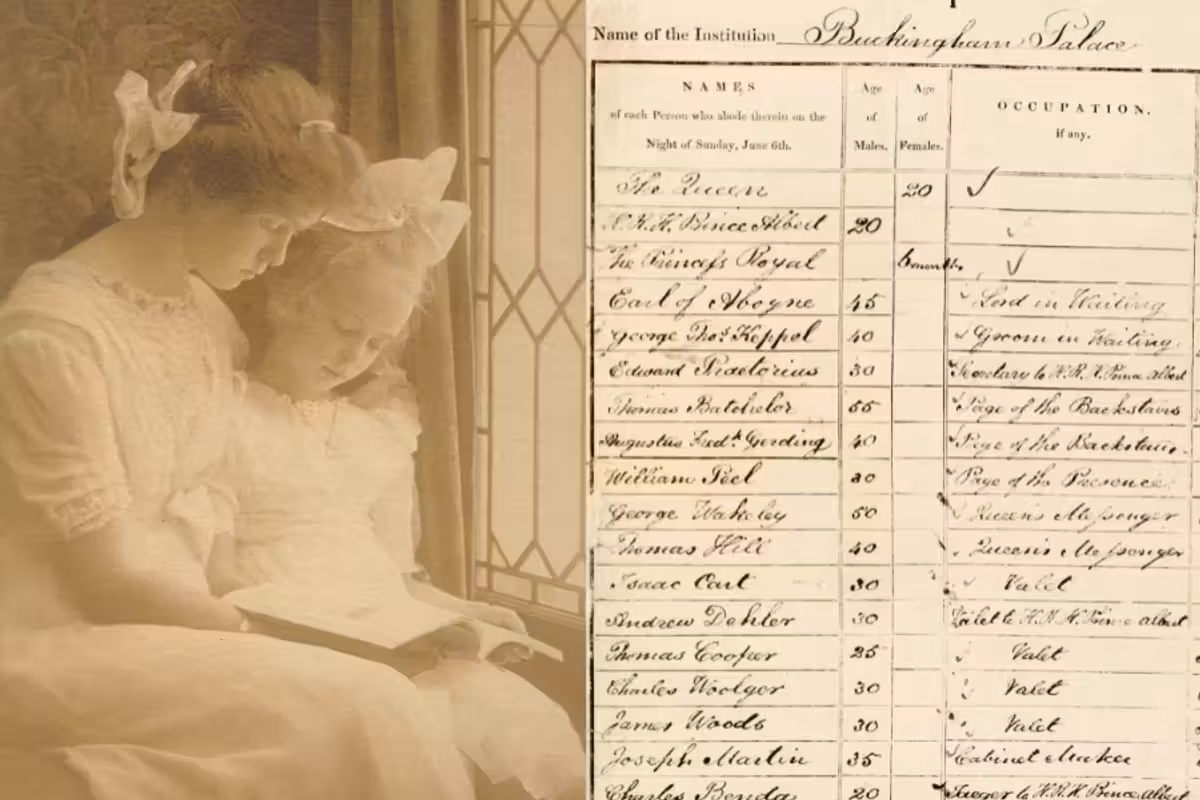 Name of the Institution Buckingham Palace
NAMES
of each Person who abode therein on the
Night of Sunday, June 6th.
Age
of
Males.
Age
of
Females.
OCCUPATION.
if any.
The Queen 20 ✓
H.R.H. Prince Albert 20 ✓
The Princess Royal 6 months ✓
Earl of Aboyne 45 Lord in Waiting
George Thos. Keppel 40 Groom in Waiting
Edward Praetorius 30 Secretary to H.R.H. Prince Albert
Thomas Batchelor 55 Page of the Backstairs
Augustus Fredk. Gerding 40 Page of the Backstairs
William Peel 30 Page of the Presence
George Wakeley 50 Queen's Messenger
Thomas Hill 40 Queen's Messenger
Isaac Cart 30 Valet
Andrew Dehler 30 Valet to H.R.H. Prince Albert
Thomas Cooper 25 Valet
Charles Woolger 30 Valet
James Woods 30 Valet
Joseph Martin 35 Cabinet Maker
Charles Benda 20 Jaeger to H.R.H. Prince Albert